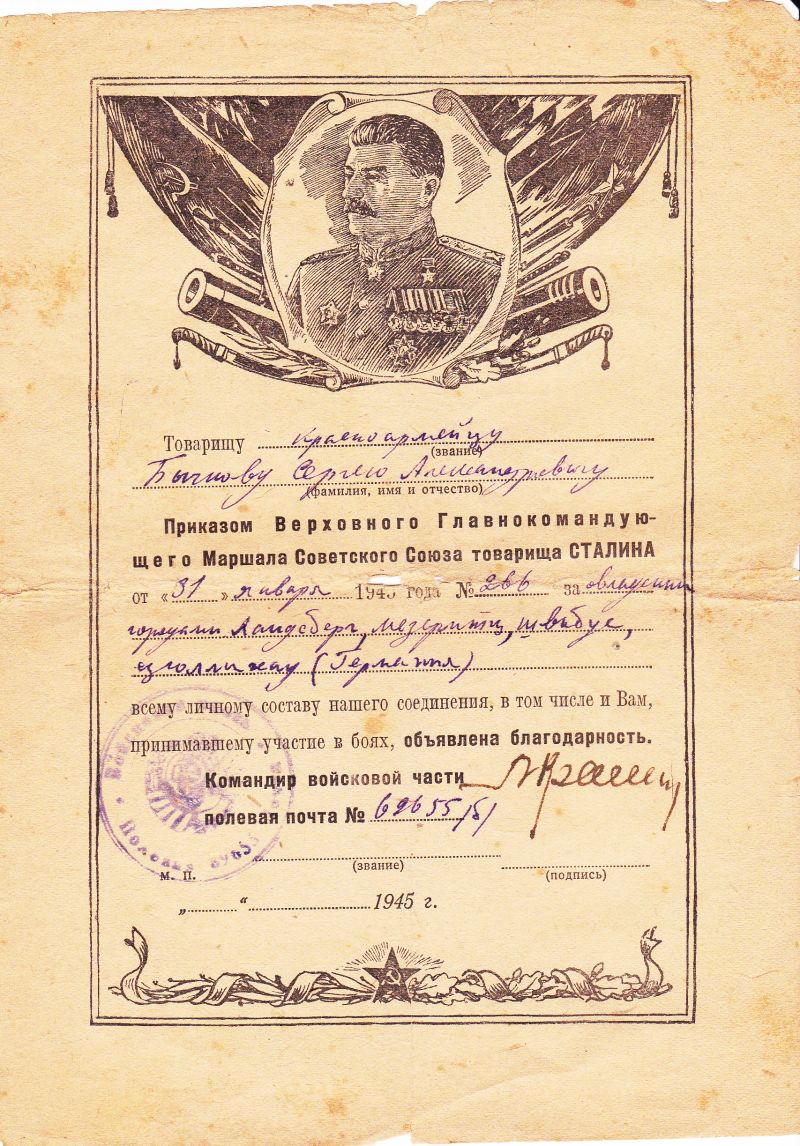 Товарищу красноармейцу
(звание)
Бычкову Сергею Александровичу
(фамилия, имя и отчество)
Приказом Верховного Главнокомандую-
щего Маршала Советского Союза товарища СТАЛИНА
от «31» января 1945 года № 266 за овладение
городами Ландсберг, Мезеритц, Швибус,
Цюллихау (Германия)
всему личному составу нашего соединения, в том числе и Вам,
принимавшему участие в боях, объявлена благодарность.
Командир войсковой части
полевая почта №
(звание)
(подпись)
М. П.
„ “ 1945 г.
Полевая